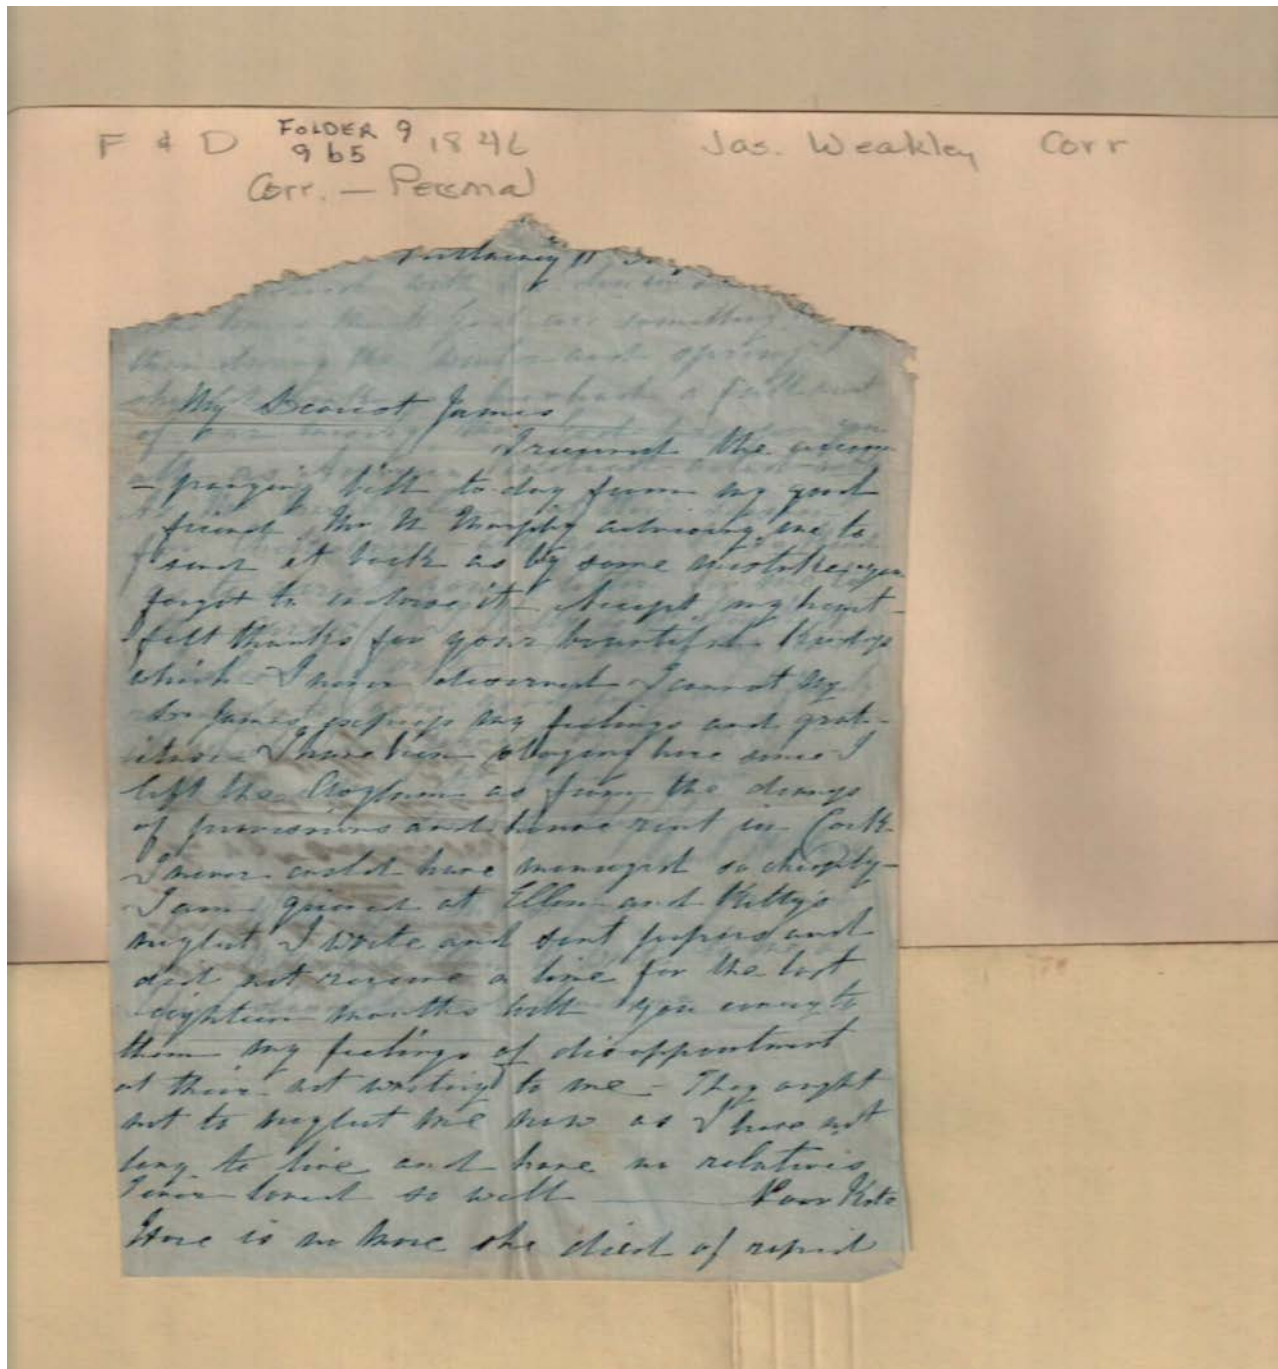 F & D FOLDER 9 1846 Jas. Weakley Corr
9 b5
Corr. — Personal
My Dearest James
I received the accom
- panying bill to-day from my good
friend Mr N Murphy advising me to
send it back as by some mistake you
forgot to indorse it - Accept my heart-
felt thanks for your bountiful kindness
which I never deserved I cannot my
dr James express my feelings and grat-
itude - I have been staying here since I
left the Asylum as from the dearness
of provisions and house rent in Cork
I never could have managed so cheaply -
I am grieved at Ellen and Kitty's
neglect I wrote and sent papers and
did not receive a line for the last
eighteen months will you convey to
them my feelings of disappointment
at their not writing to me - They ought
not to neglect me now as I have not
long to live and have no relatives
I ever loved so well — Poor Kate
Hore is no more she died of rapid